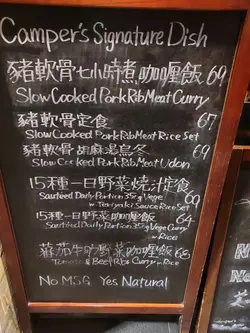 Camper's Signature Dish
豬軟骨七小時煮咖喱飯 69
Slow Cooked Pork Rib Meat Curry
豬軟骨定食 67
Slow Cooked Pork Rib Meat Rice Set
豬軟骨胡麻湯烏冬 69
Slow Cooked Pork Rib Meat Udon
15種一日野菜燒汁定食
Sauteed Daily Portion 35g Vege 69
w Teriyaki Sauce Rice Set
15種一日野菜咖喱飯 64
Sauteed Daily Portion 35g Vege Curry
w Rice
蕃茄牛肋咖喱飯 68
Tomato & Beef Ribs Curry w Rice
No MSG Yes Natural